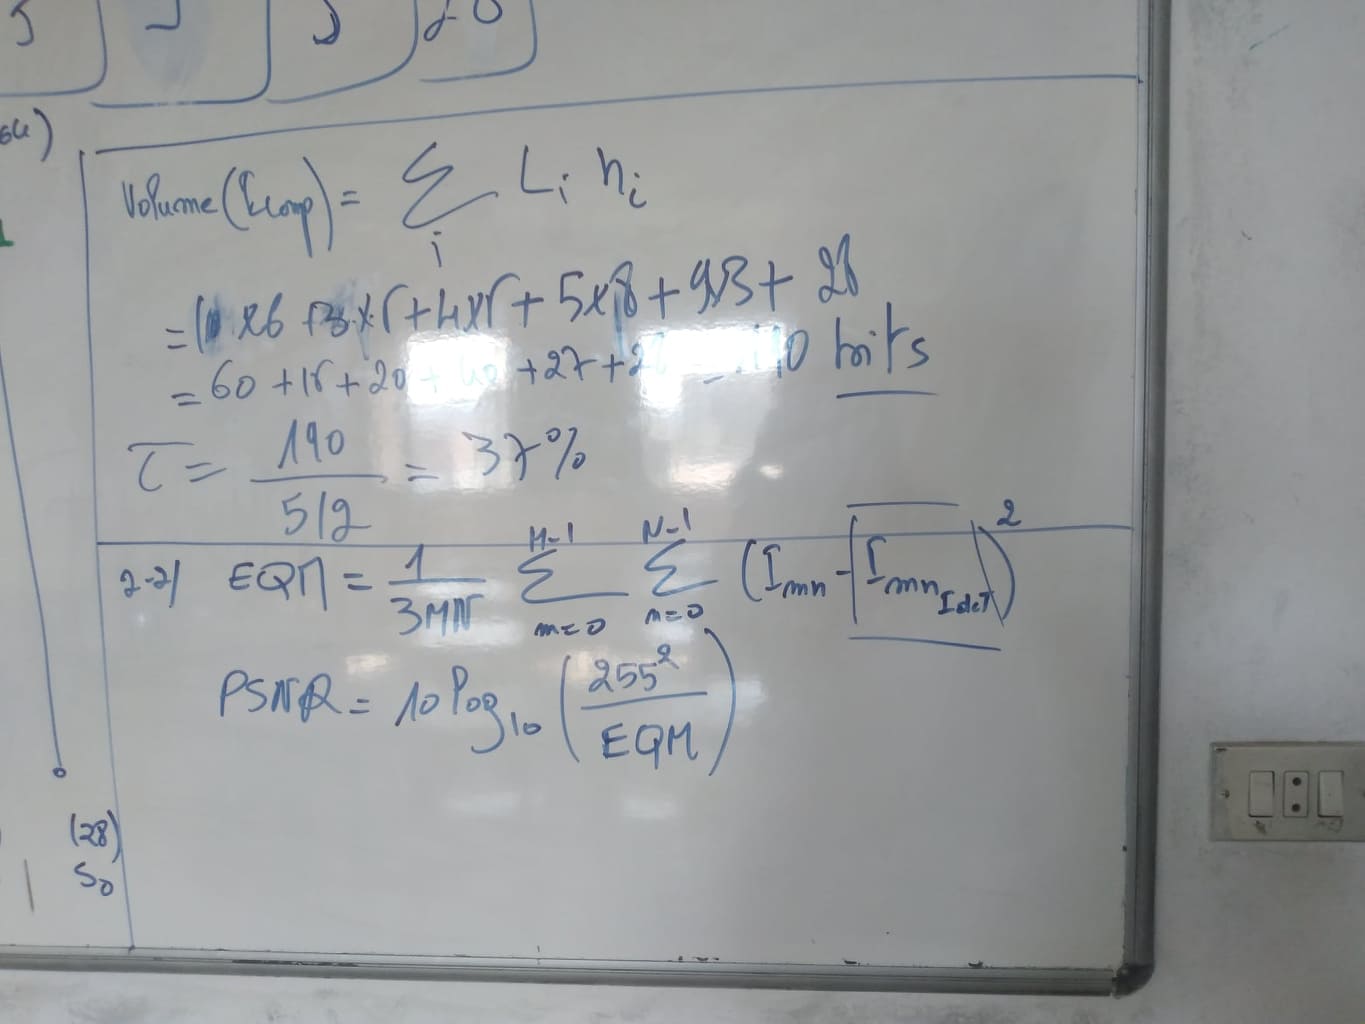 5 20
Volume(Icomp) = Σ Li ni
i
= 10 x6 + 3x5 + 4x5 + 5x8 + 9x3 + 28
= 60 + 15 + 20 + 40 + 27 + 28 = 190 bits
τ = 190 / 512 = 37%
2-2/ EQM = 1 / 3MN Σ (m=0, M-1) Σ (n=0, N-1) (Imn - Imn Idct)²
PSNR = 10 log10 (255² / EQM)
(28)
S0